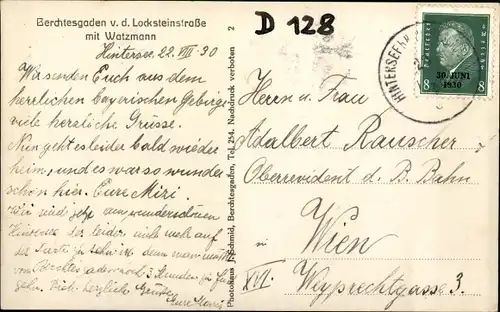 Berchtesgaden v. d. Locksteinstraße
mit Watzmann
Hintersee 22. VII. 30
Wir senden Euch aus dem
herrlichen bayerischen Gebirge
viele herzliche Grüsse.
Nun geht es leider bald wieder
heim, und es war so wunder
schön hier. Eure Mizi.
Wir sind jetzt am wunderschönen
Hintersee der leider nicht mehr auf
der Karte zu sehn ist denn man muß
von Berchtesgaden noch 3 Stunden zu Fuß
gehn. Viele herzliche Grüße
Eure
Photohaus J. Schmid, Berchtesgaden, Tel. 254. Nachdruck verboten 2
D 128
HINTERSEE
Deutsches Reich
30. JUNI
1930
8 8
Herrn u. Frau
Adalbert Rauscher
Oberrevident d. B. Bahn
in Wien
XVI. Weyprechtgasse 3.